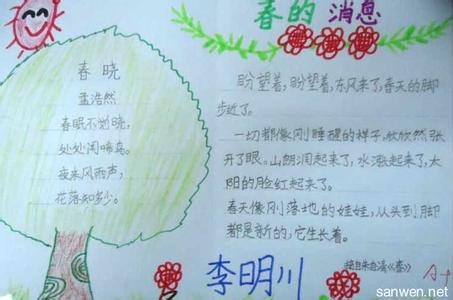 春的消息
春晓
孟浩然
春眠不觉晓,
处处闻啼鸟。
夜来风雨声,
花落知多少。
盼望着,盼望着,东风来了,春天的脚
步近了。
一切都像刚睡醒的样子,欣欣然张
开了眼。山朗润起来了,水涨起来了,太
阳的脸红起来了。
春天像刚落地的娃娃,从头到脚
都是新的,它生长着。
摘自朱自清《春》
李明川
A+
sanwen.net